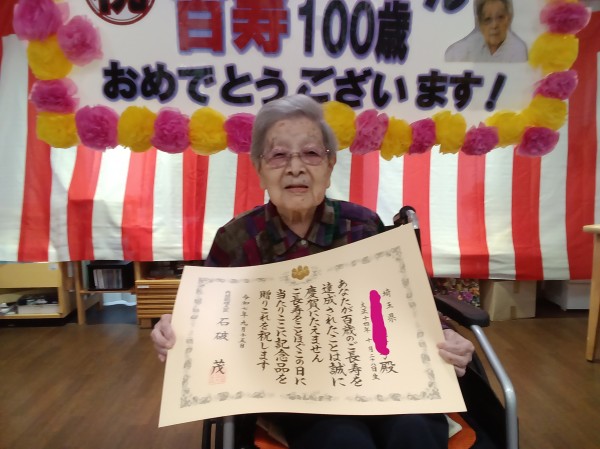 祝
百寿100歳
おめでとうございます!
埼玉県
殿
あなたが百歳のご長寿を
達成されたことは誠に
慶賀にたえません
ご長寿をことほぐこの日に
当たりここに記念品を
贈りこれを祝します
石破 茂